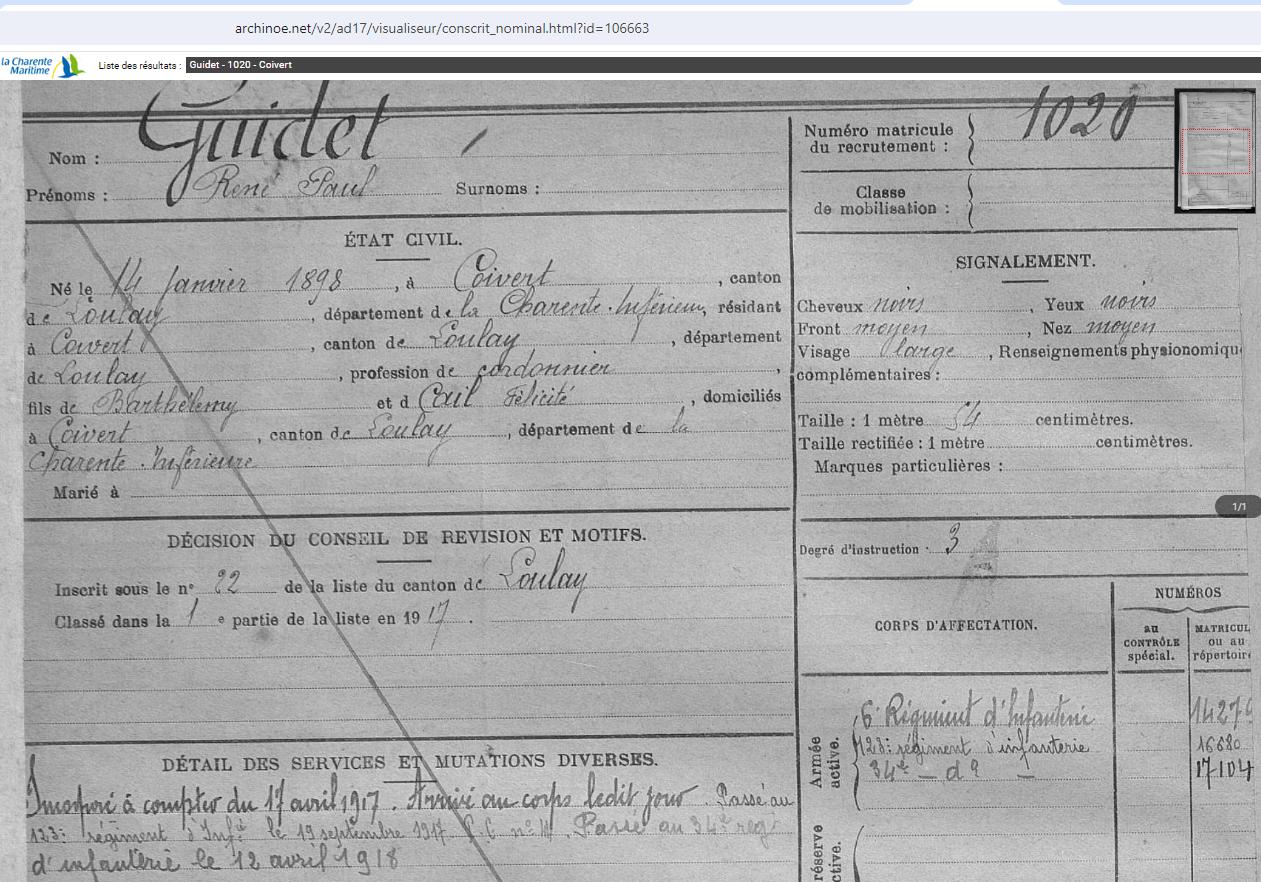 archinoe.net/v2/ad17/visualiseur/conscrit_nominal.html?id=106663
la Charente
Maritime
Liste des résultats : Guidet - 1020 - Coivert
Nom : Guidet
Prénoms : René Paul Surnoms :
Numéro matricule
du recrutement : 1020
Classe
de mobilisation :
ÉTAT CIVIL.
Né le 14 Janvier 1898, à Coivert, canton
de Loulay, département de la Charente-Inférieure, résidant
à Coivert, canton de Loulay, département
de Loulay, profession de cordonnier,
fils de Barthélemy et d Félicité, domiciliés
à Coivert, canton de Loulay, département de la
Charente-Inférieure
Marié à
SIGNALEMENT.
Cheveux noirs, Yeux noirs
Front moyen, Nez moyen
Visage large, Renseignements physionomiqu
complémentaires :
Taille : 1 mètre 54 centimètres.
Taille rectifiée : 1 mètre centimètres.
Marques particulières :
1/1
Degré d'instruction : 3
DÉCISION DU CONSEIL DE REVISION ET MOTIFS.
Inscrit sous le n° 22 de la liste du canton de Loulay
Classé dans la 1 e partie de la liste en 1917.
CORPS D'AFFECTATION.
NUMÉROS
au
CONTRÔLE
spécial.
MATRICUL
ou au
répertoire
Armée
active.
6e Régiment d'Infanterie 1427
123e régiment d'infanterie 16680
34e — do — 17104
réserve
ctive.
DÉTAIL DES SERVICES ET MUTATIONS DIVERSES.
Incorporé à compter du 17 avril 1917. Arrivé au corps ledit jour. Passé au
123e régiment d'Infie le 19 septembre 1917 Passé au 34e reg
d'infanterie le 12 avril 1918